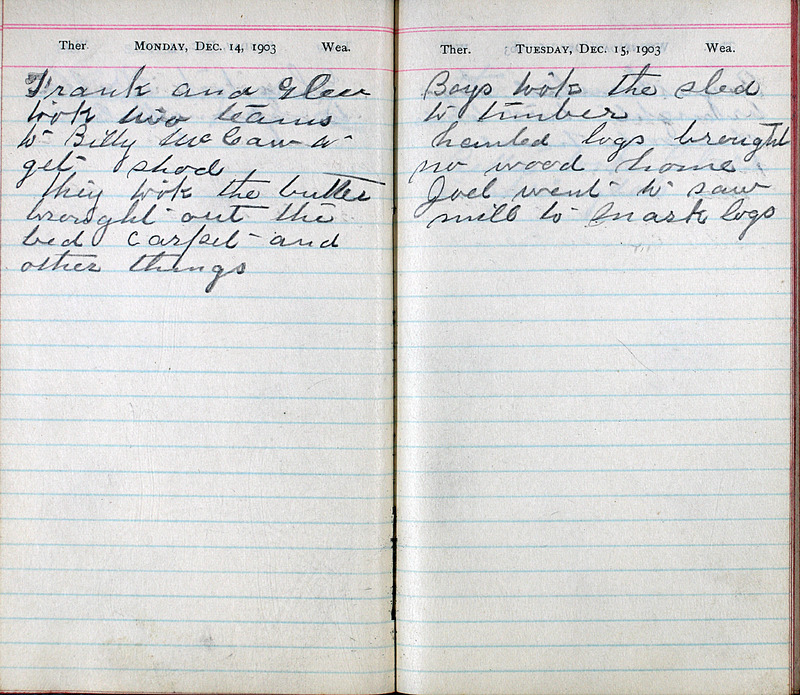 Ther. Monday, Dec. 14, 1903 Wea.
Frank and Glen
took two teams
to Billy McCaw to
get shod
they took the butter
brought out the
bed carpet and
other things
Ther. Tuesday, Dec. 15, 1903 Wea.
Boys took the sled
to timber
hauled logs brought
no wood home
Joel went to saw
mill to mark logs